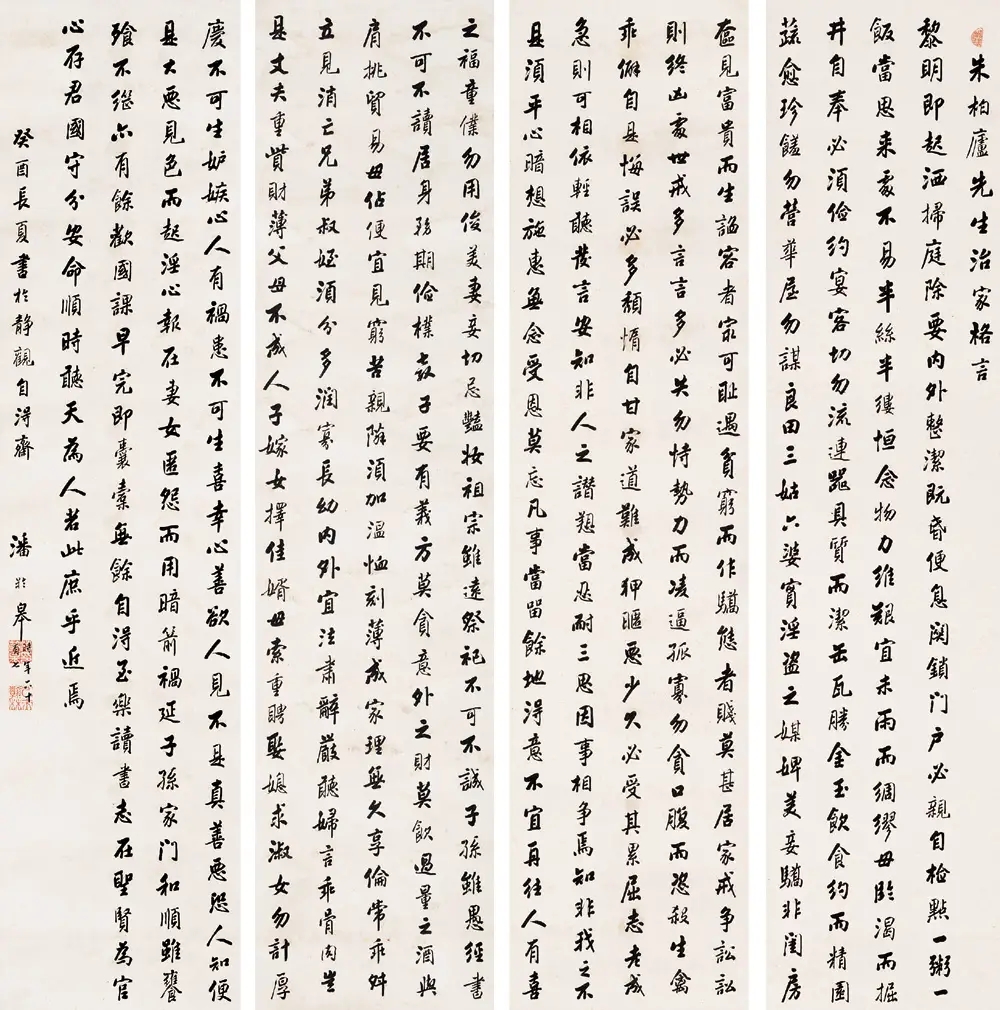 朱柏廬先生治家格言
黎明即起洒掃庭除要内外整潔既昏便息関鎖门户必親自檢點一粥一
飯當思来處不易半絲半縷恒念物力維艱宜未雨而綢繆毋臨渴而掘
井自奉必須儉約宴客切勿流連器具質而潔缶瓦勝金玉飲食約而精園
蔬愈珍饈勿營華屋勿謀良田三姑六婆實淫盗之媒婢美妾驕非閨房
奩見富貴而生諂容者㝡可耻遇貧窮而作驕態者賤莫甚居家戒争訟訟
則終凶處世戒多言言多必失勿恃勢力而凌逼孤寡勿貪口腹而恣殺生禽
乖僻自是悔誤必多頹惰自甘家道難成狎暱惡少久必受其累屈志老成
急則可相依輕聽發言安知非人之譖愬當忍耐三思因事相争焉知非我之不
是須平心暗想施惠無念受恩莫忘凡事當留餘地得意不宜再往人有喜
之福童僕勿用俊美妻妾切忌豔妆祖宗雖遠祭祀不可不誠子孫雖愚經書
不可不讀居身務期儉樸教子要有義方莫貪意外之財莫飲過量之酒與
肩挑貿易毋佔便宜見窮苦親隣須加温恤刻薄成家理無久享倫常乖舛
立見消亡兄弟叔姪須分多潤寡長幼内外宜法肅辭嚴聽婦言乖骨肉豈
是丈夫重貲財薄父母不成人子嫁女擇佳婿毋索重聘娶媳求淑女勿計厚
慶不可生妒嫉心人有禍患不可生喜幸心善欲人見不是真善惡恐人知便
是大惡見色而起淫心報在妻女匿怨而用暗箭禍延子孫家门和順雖饔
飧不繼亦有餘歡國課早完即囊橐無餘自得至樂讀書志在聖賢為官
心存君國守分安命順時聽天為人若此庶乎近焉
癸酉長夏書於静觀自得齋 潘龄皋 時年六十有七